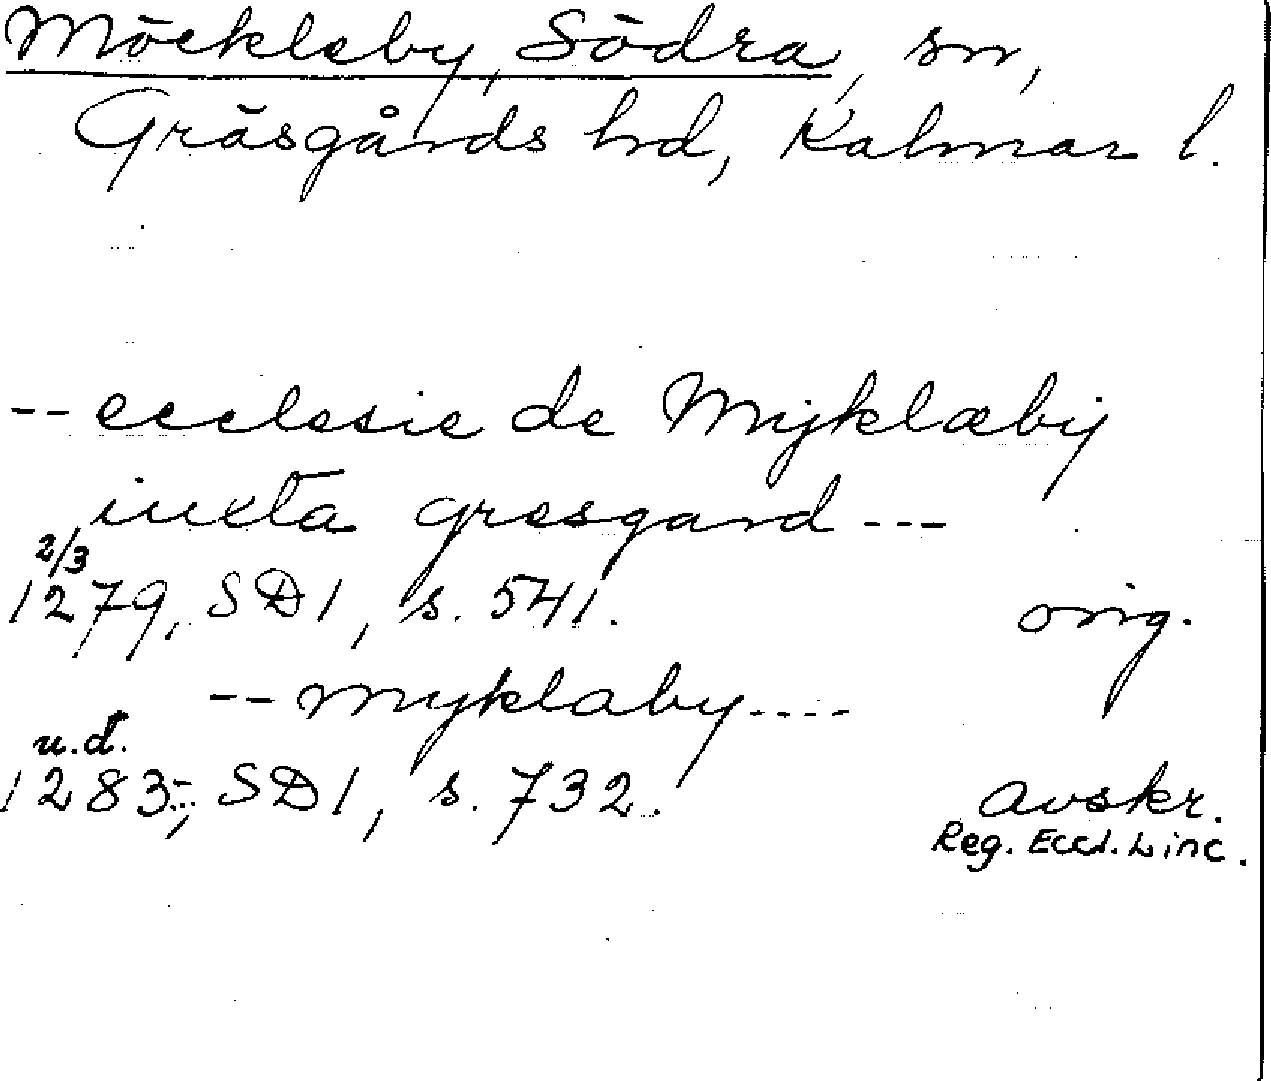 Möckleby, Södra, sn,
Gräsgårds hd, Kalmar l.
-- ecclesie de Myklæby
iuxta gresgard ---
2/3
1279, SD1, s. 541. orig.
-- myklaby ----
u.d.
1283-, SD1, s. 732. avskr.
Reg. Eccl. Linc.